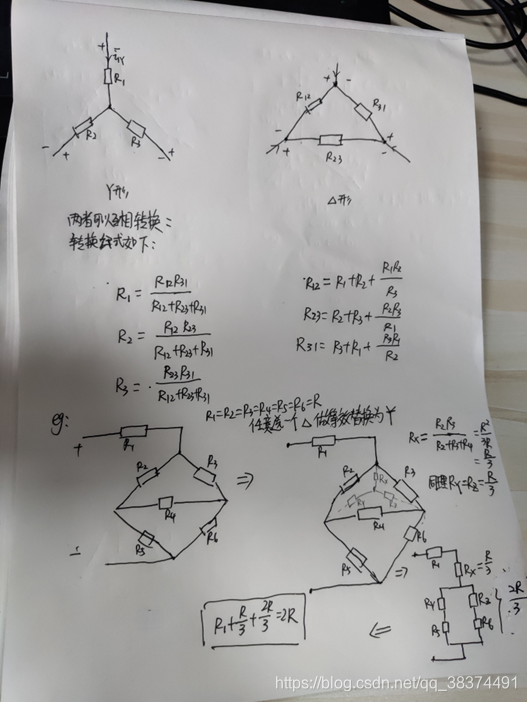 R₁
R₂
R₃
R₁₂
R₃₁
R₂₃
Y形
△形
两者可以互相转换:
转换公式如下:
R₁ = R₁₂R₃₁ / (R₁₂+R₂₃+R₃₁)
R₂ = R₁₂R₂₃ / (R₁₂+R₂₃+R₃₁)
R₃ = R₂₃R₃₁ / (R₁₂+R₂₃+R₃₁)
R₁₂ = R₁+R₂+ R₁R₂/R₃
R₂₃ = R₂+R₃+ R₂R₃/R₁
R₃₁ = R₃+R₁+ R₃R₁/R₂
eg:
R₁=R₂=R₃=R₄=R₅=R₆=R
任意选一个△做等效替换为Y
+
R₁
R₂
R₃
R₄
R₅
R₆
-
⇒
R₁
R₂
R₃
Rx
Ry
Rz
R₄
R₅
R₆
Rx = R₂R₃ / (R₂+R₃+R₄) = R²/3R
= R/3
同理Ry=Rz=R/3
⇒
R₁
Rx=R/3
Ry
Rz
R₅
R₆
2R/3
⇐
R₁+R/3+2R/3=2R
https://blog.csdn.net/qq_38374491